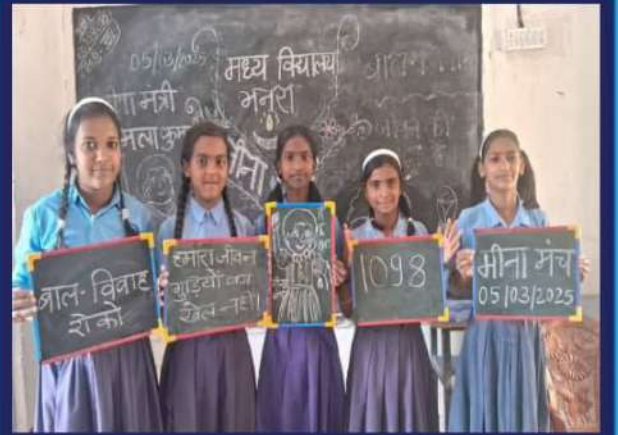 05/03/2025
मध्य विद्यालय
भनुरा
मीना
बाल-विवाह
रोको
हमारा जीवन
गुड़ियों का
खेल नहीं।
1098
मीना मंच
05/03/2025